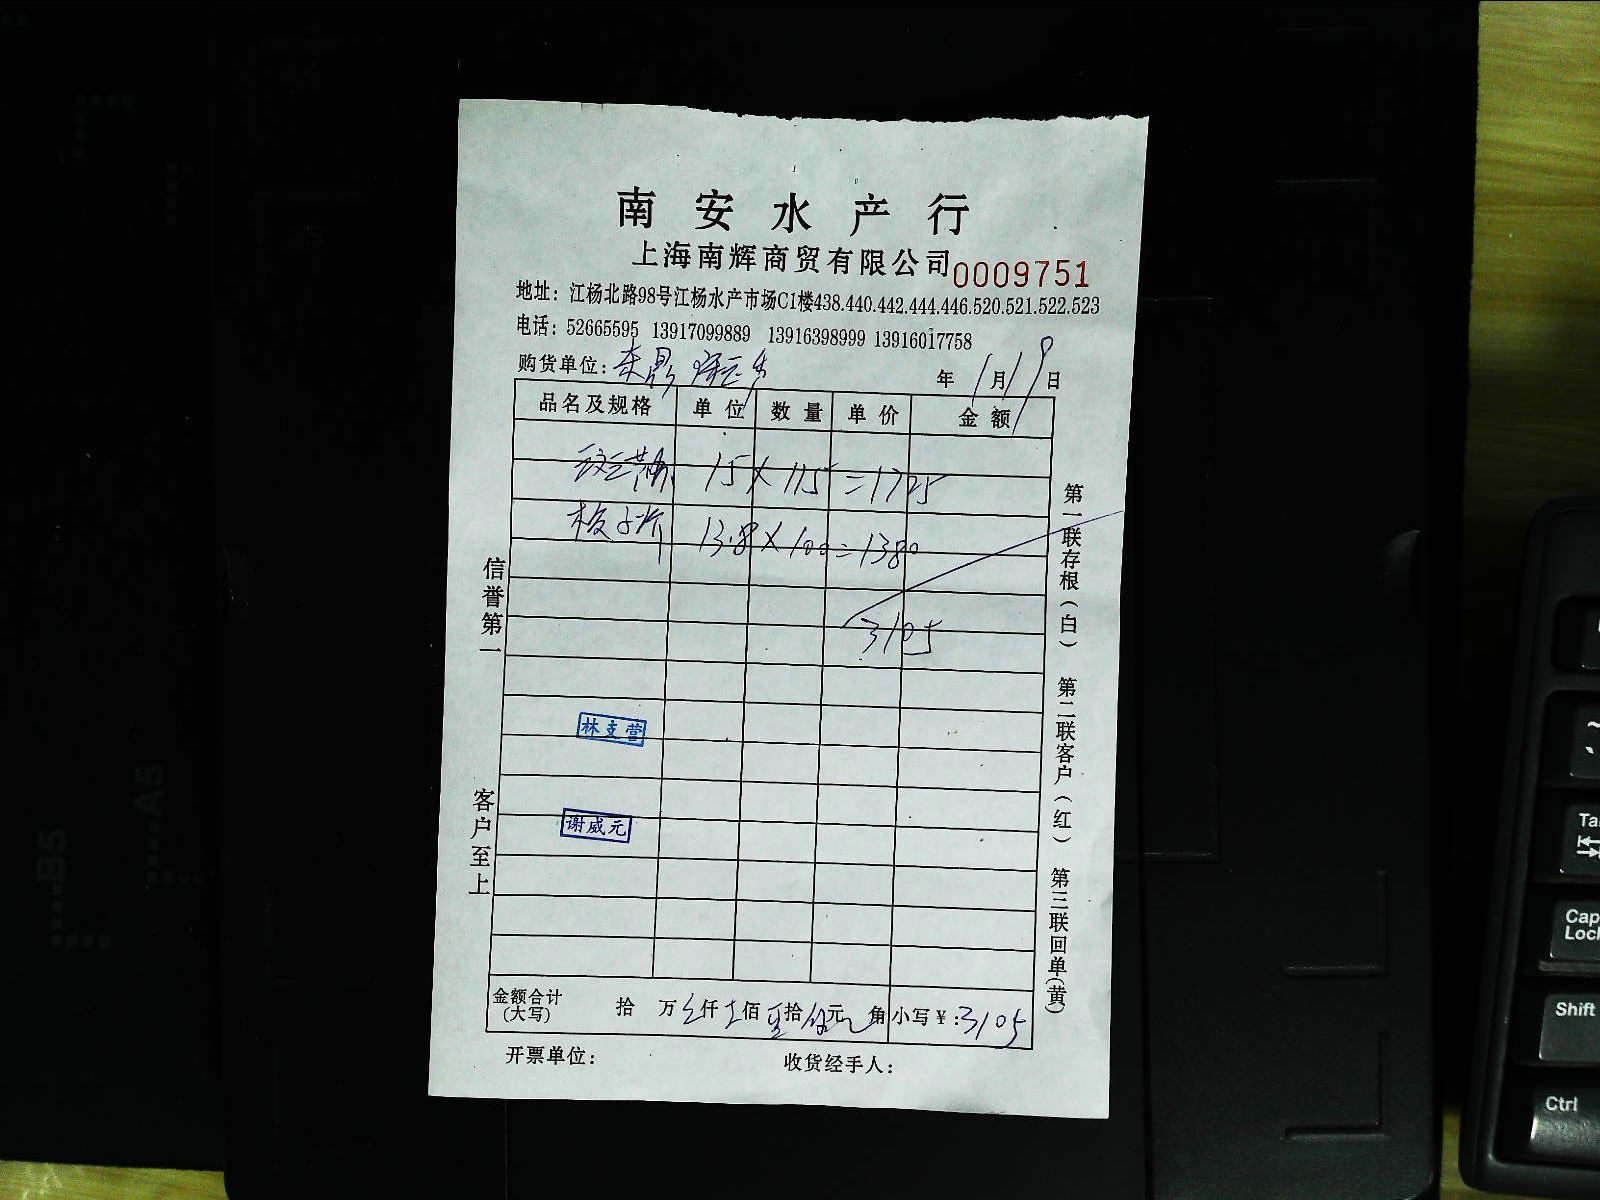 南安水产行
上海南辉商贸有限公司 0009751
地址：江杨北路98号江杨水产市场C1楼438.440.442.444.446.520.521.522.523
电话：52665595 13917099889 13916398999 13916017758
购货单位： 年 1月19日
品名及规格 单位 数量 单价 金额
15×115=1725
13.8×100=1380
3105
林支营
谢威元
金额合计(大写) 拾 万 仟 佰 拾 元 角 小写￥：3105
开票单位： 收货经手人：
信誉第一 客户至上
第一联存根（白） 第二联客户（红） 第三联回单（黄）
B5
A5
Cap
Loc
Shift
Ctrl